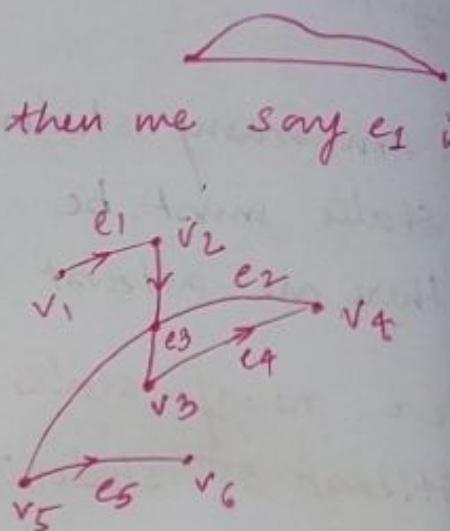 then we say e1
e1 v2
v1 e2
e3 v4
e4
v3
v5 e5 v6